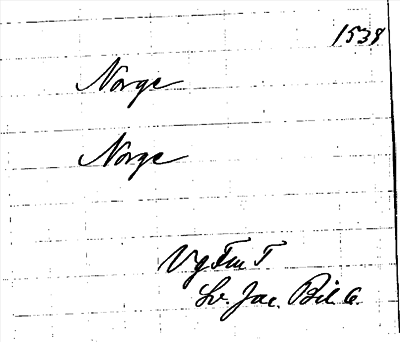 1538
Norge
Norge
Vg Fm T
Lv. Jac. Bil. 6.